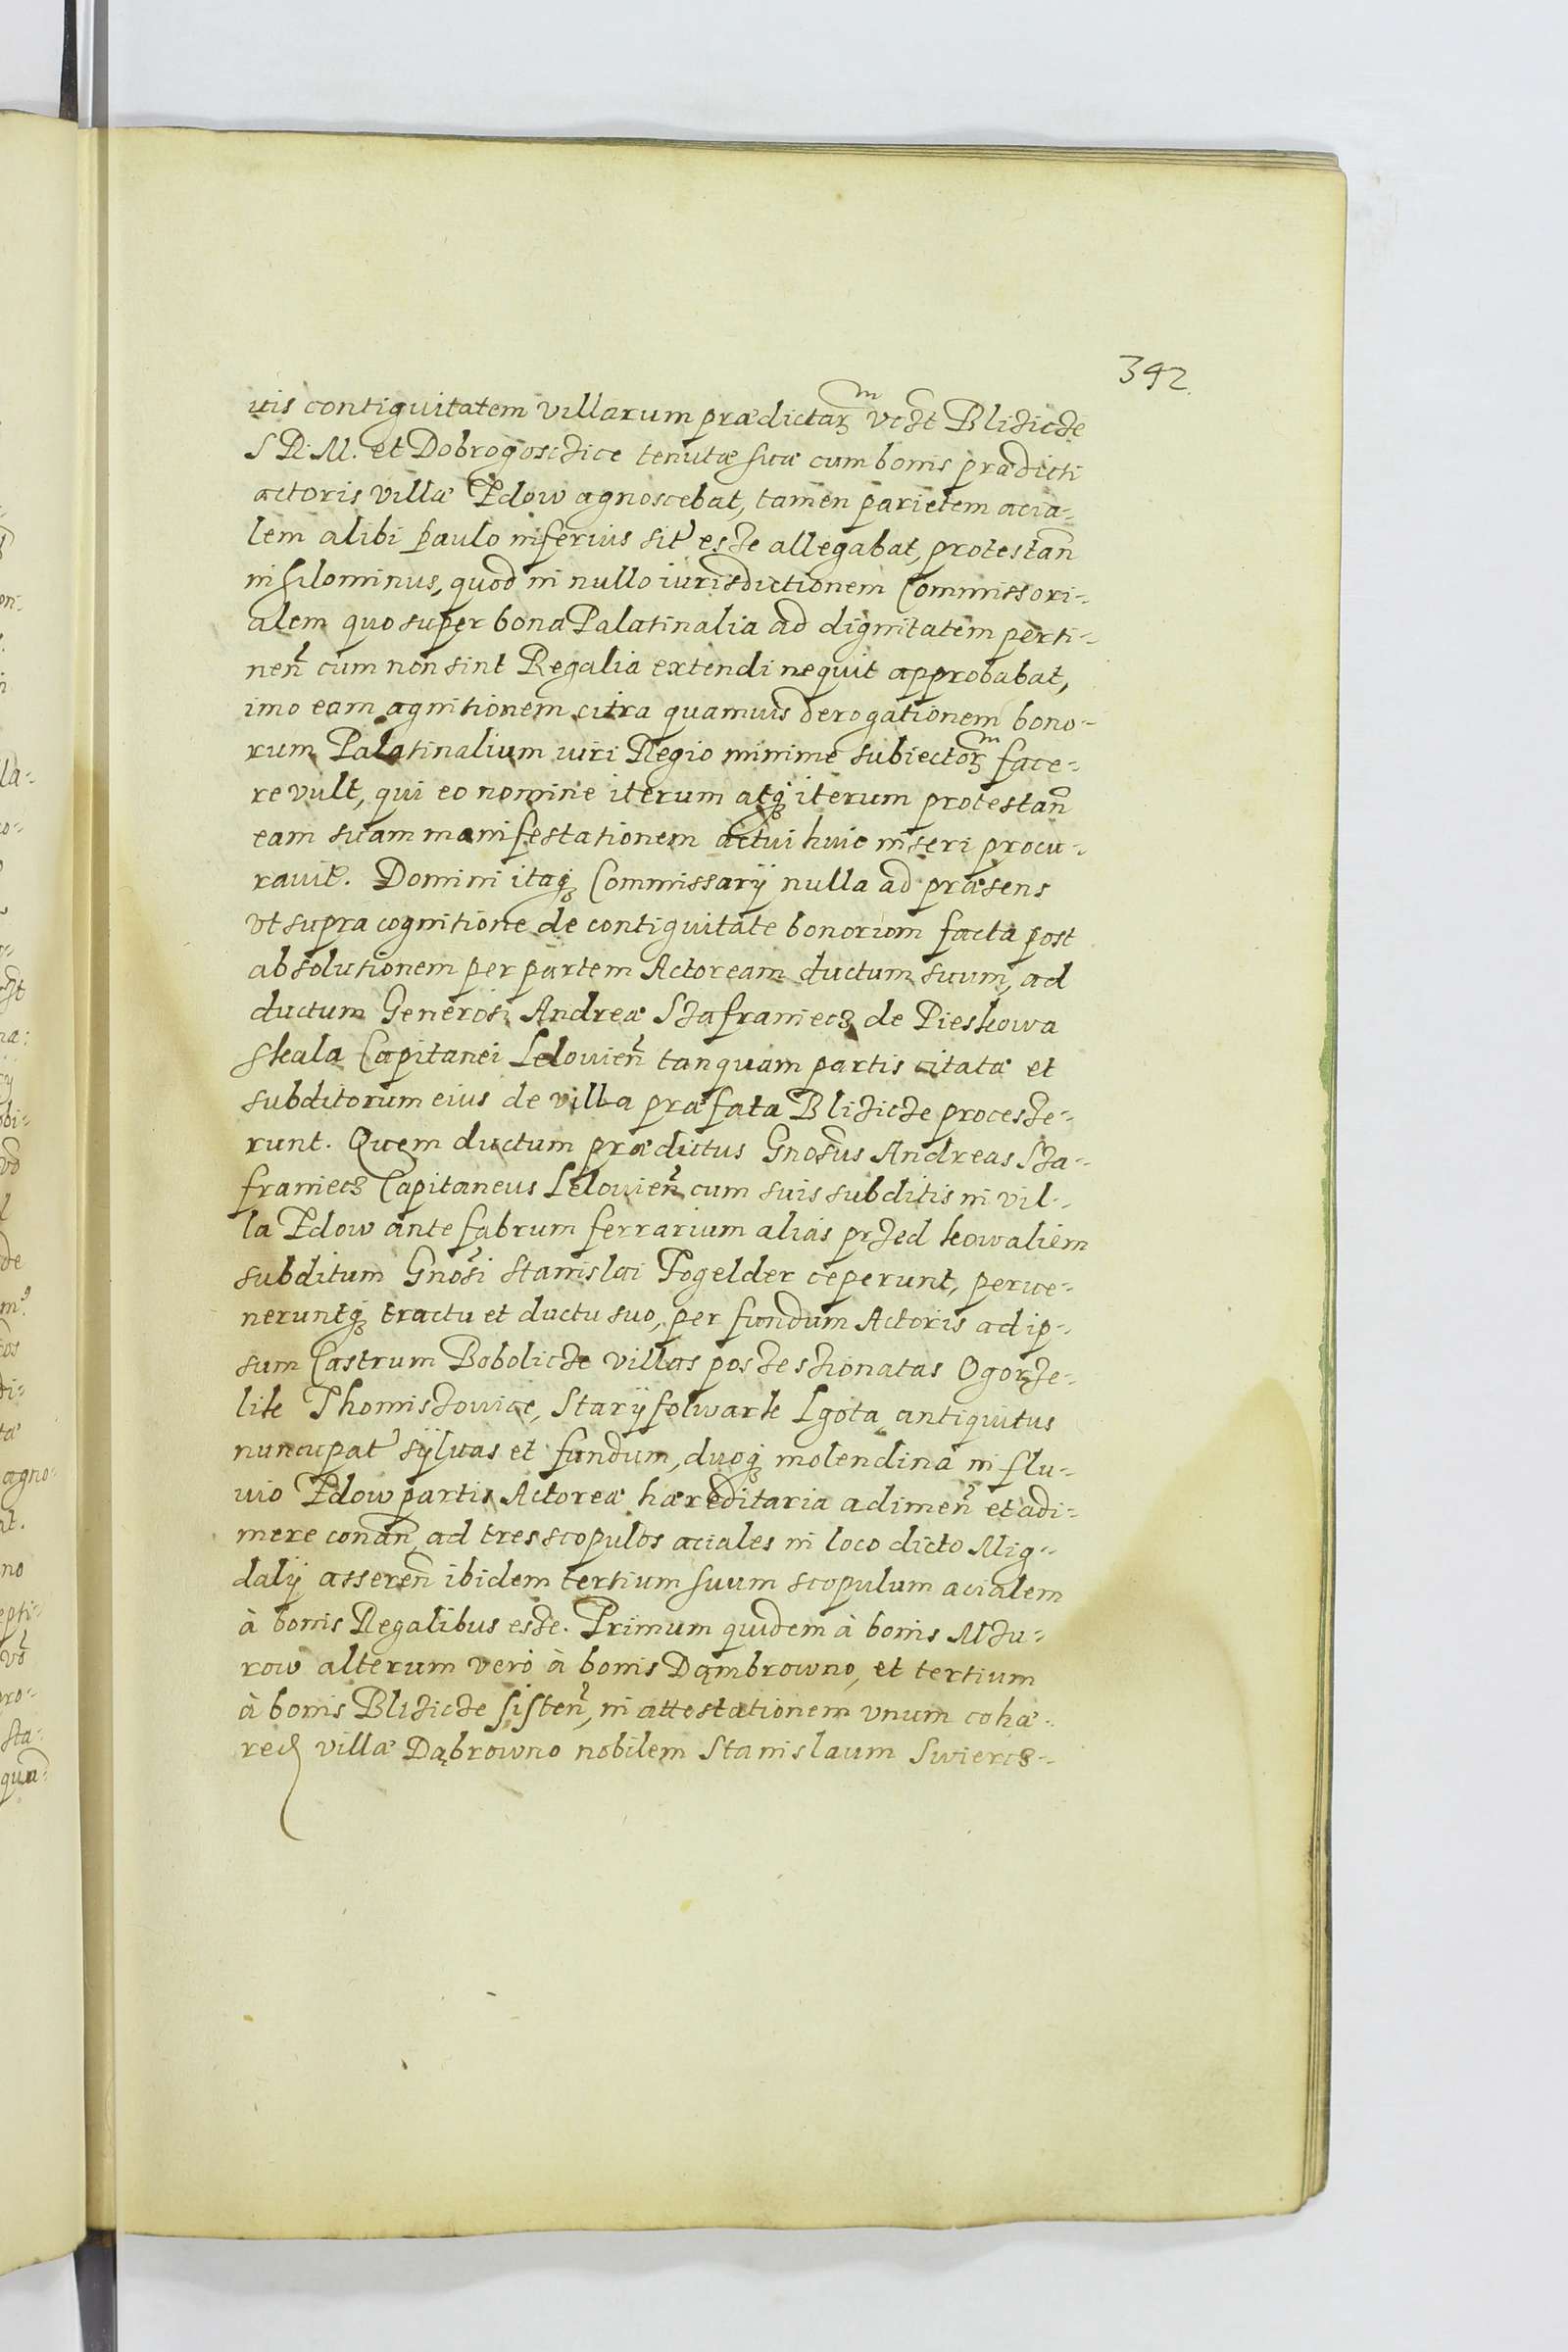 392.
uis contiguitatem villarum prædictarm vczt Blizicze
S R. M. et Dobrogoszczice tenutæ suæ cum bonis prædicti
actoris villæ Zdow agnoscebat, tamen parietem acia-
lem alibi paulo inferius sit esse allegabat, protestan
nihilominus, quod in nullo iurisdictionem Commissori-
alem quo super bona Palatinalia ad dignitatem perti-
nen cum non sint Regalia extendi nequit approbabat,
imo eam agnitionem citra quamuis derogationem bono-
rum Palatinalium iuri Regio minime subiectorm face-
re vult, qui eo nomine iterum atq iterum protestan
eam suam manifestationem actui huic inseri procu-
rauit. Domini itaq Commissarij nulla ad præsens
vt supra cognitione de contiguitate bonorum facta post
absolutionem per partem Actoream ductum suum, ad
ductum Generosi Andreæ Szafraniecz de Pieskowa
skala Capitanei Lelouien tanquam partis citatæ et
subditorum eius de villa præfata Blizicze processe-
runt. Quem ductum prædictus Gnosus Andreas Sza-
franiecz Capitaneus Lelouien cum suis subditis in vil-
la Zdow ante fabrum ferrarium alias przed kowaliem
subditum Gnosi Stanislai Fogelder ceperunt, perue-
neruntq tractu et ductu suo, per fundum Actoris ad ip-
sum Castrum Bobolicze villas possessionatas Ogorze-
lik Thomiszowice, Starij folwark Lgota antiquitus
nuncupat syluas et fundum, duoq molendina in flu-
uio Zdow partis Actoreæ hæreditaria adimen et adi-
mere conan, ad tres scopulos aciales in loco dicto Mig-
dalij asseren ibidem tertium suum scopulum acialem
à bonis Regalibus esse. Primum quidem à bonis Mzu-
row alterum vero à bonis Dąmbrowno, et tertium
à bonis Blizicze sisten, in attestationem vnum cohæ-
red villæ Dąbrowno nobilem Stanislaum Swiercz-